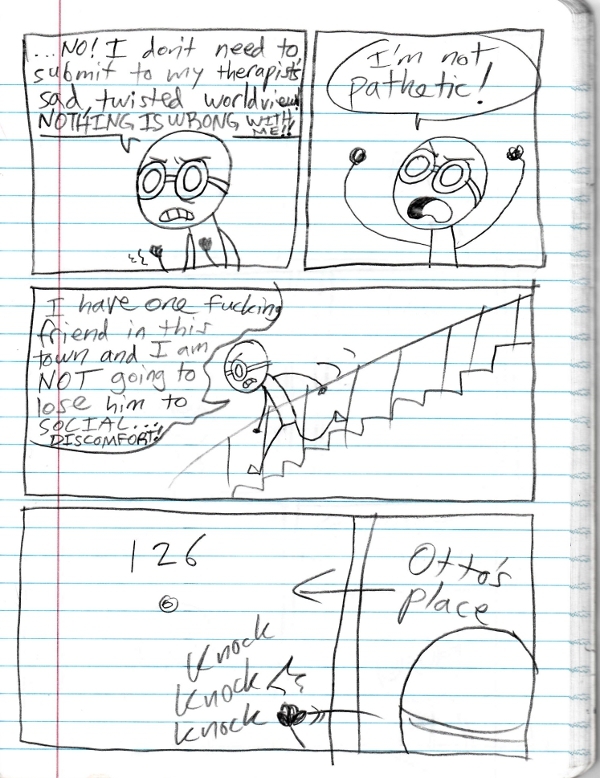 ...NO! I don't need to
submit to my therapist's
sad, twisted worldview!
NOTHING IS WRONG WITH
ME!!
I'm not
pathetic!
I have one fucking
friend in this
town and I am
NOT going to
lose him to
SOCIAL...
DISCOMFORT!
126
Otto's
place
Knock
Knock
Knock